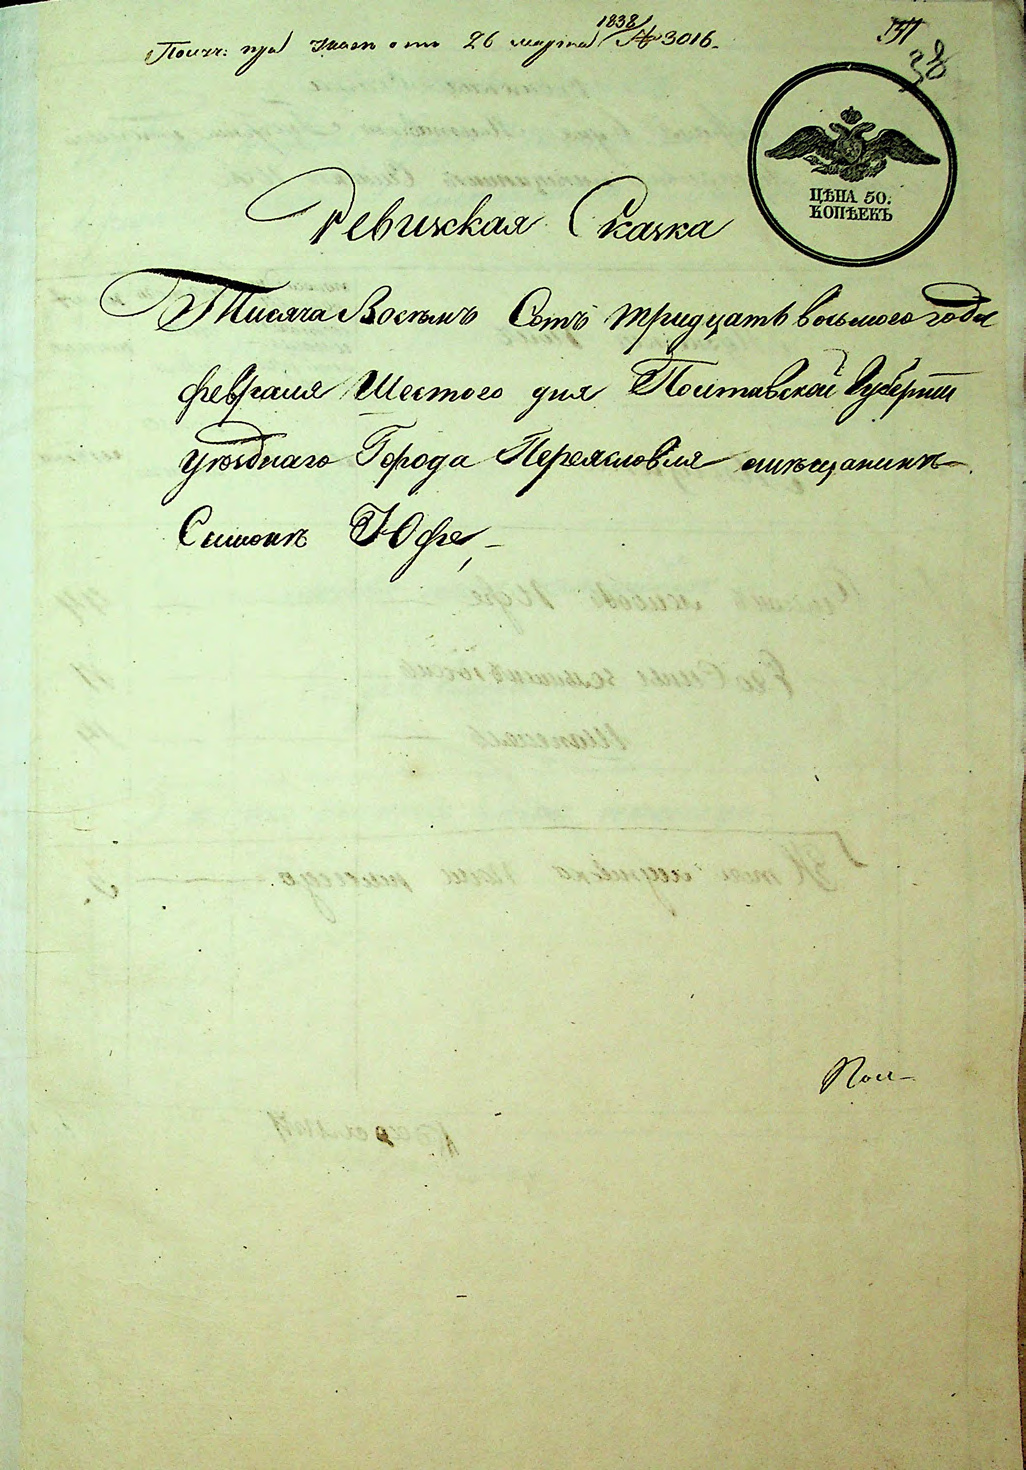 Получ: при указе отъ 26 марта 1838 № 3016.
38
ЦѢНА 50.
КОПѢЕКЪ
Ревизская Сказка
Тисяча Восемъ Сотъ тридцать восьмого года
февраля Шестого дня Полтавской Губернии
уѣзднаго Города Переясловля мѣщанинъ
Симонъ Юфе,
Пол-